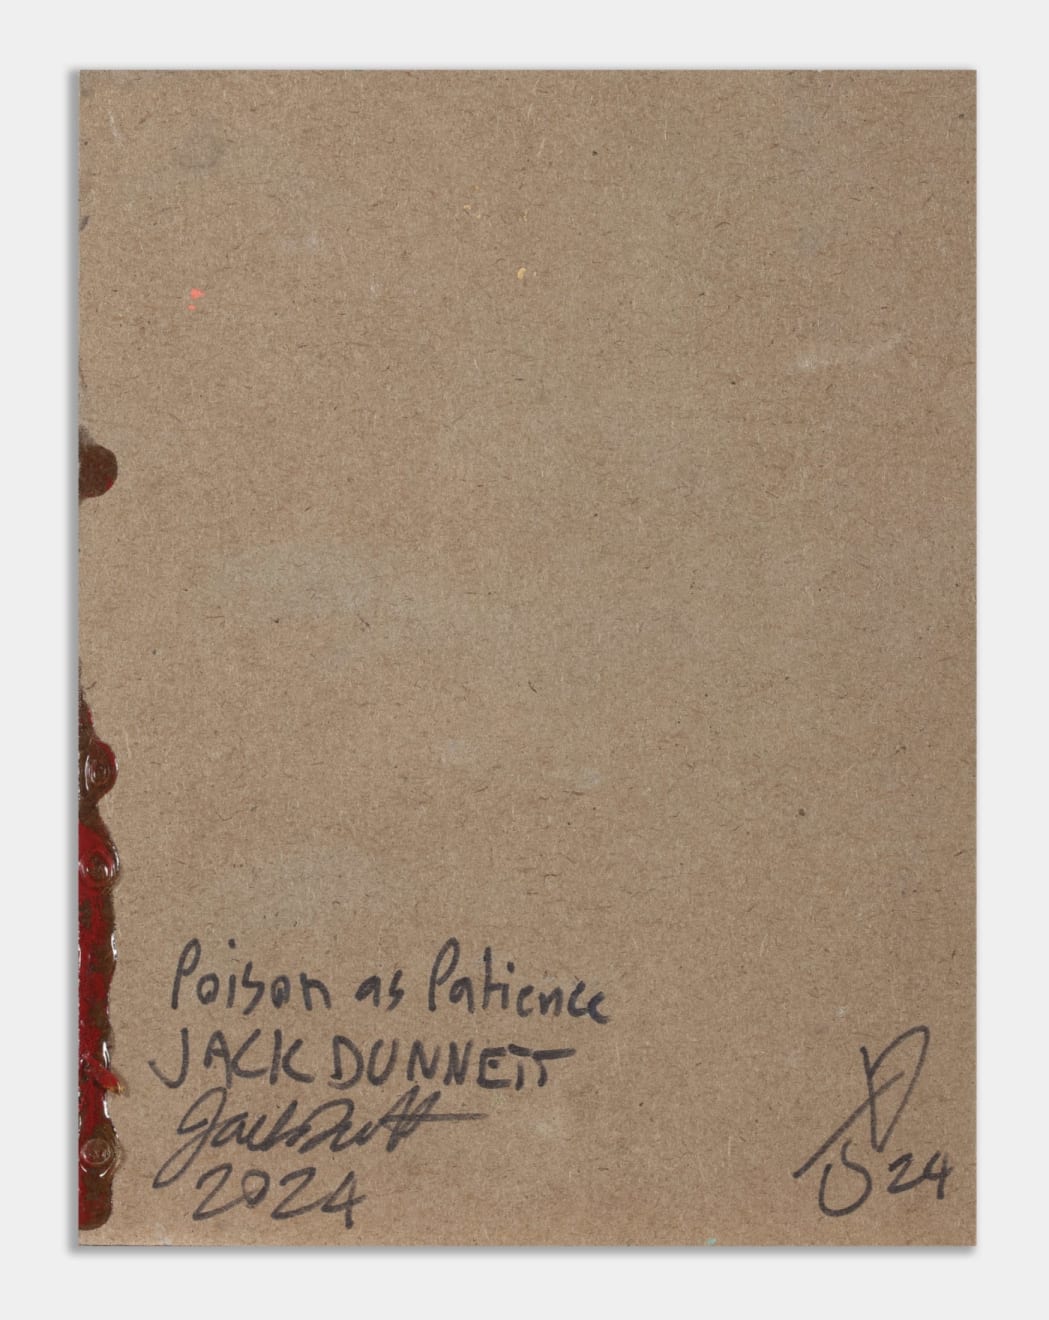 Poison as Patience
JACK DUNNETT
Jack Dunnett
2024
24